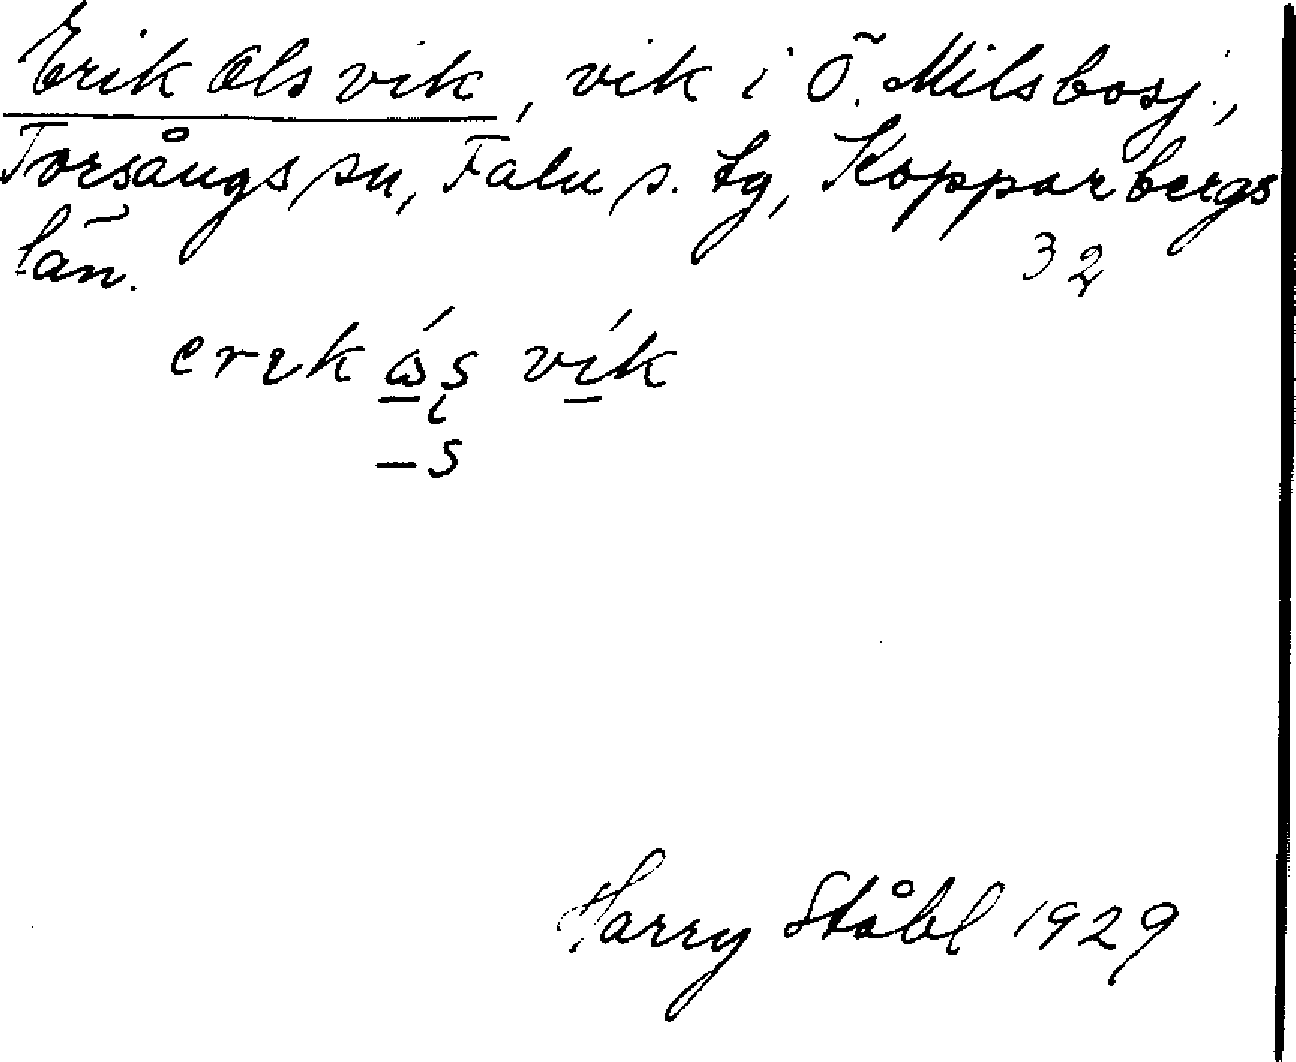 Erik Ols vik, vik i Ö. Milsbosj.,
Torsångs sn, Falu s. tg, Kopparbergs
län.
32
vik
Harry Ståhl 1929